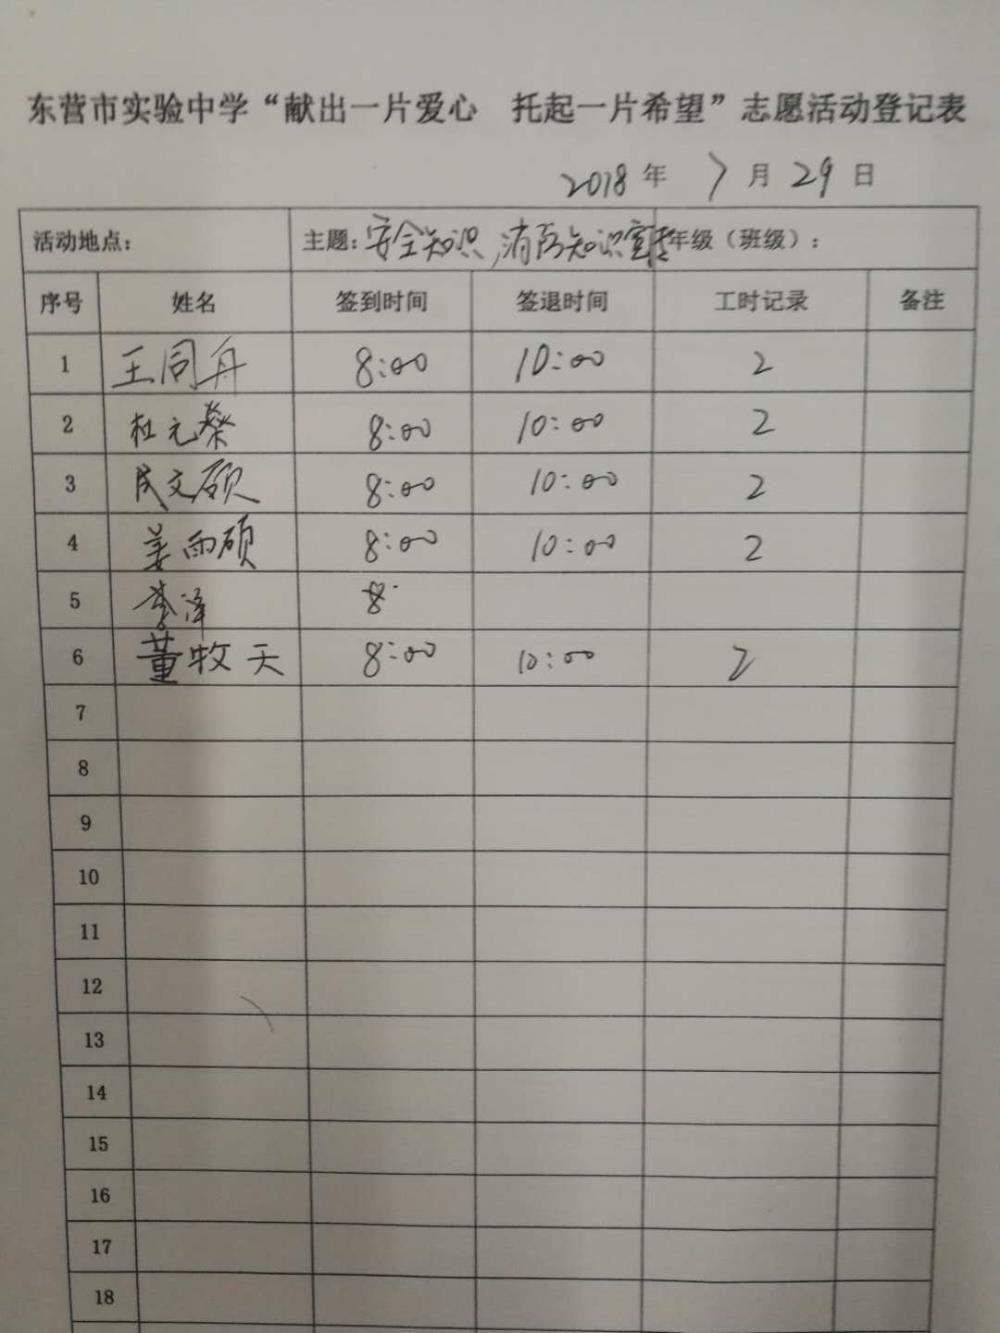 东营市实验中学“献出一片爱心 托起一片希望”志愿活动登记表
2018年 7月29日
活动地点: 主题:安全知识,消防知识宣传 年级(班级):
序号 姓名 签到时间 签退时间 工时记录 备注
1 王同舟 8:00 10:00 2
2 杜元荣 8:00 10:00 2
3 成文硕 8:00 10:00 2
4 姜雨硕 8:00 10:00 2
5 李泽 8:
6 董牧天 8:00 10:00 2
7
8
9
10
11
12
13
14
15
16
17
18